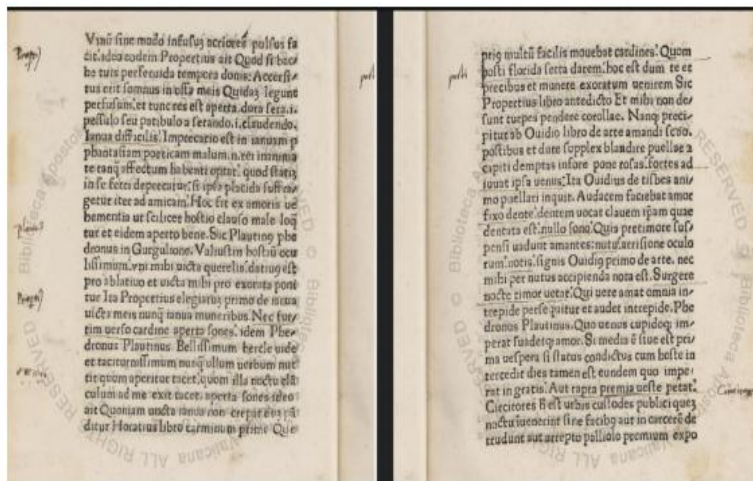 Vinū sine modo infusuȝ acriores pulsus fa
cit. idea eodem Propertius ait Quod si hec
he tuis persecuida tempora donis: Accersi
tus erit somnus in ossa meis Quidaȝ legunt
perfusam. et tunc res est aperta. dura sera. i.
pessulo seu patibulo a serando. i. claudendo.
Ianua difficilis. Imprecatio est in ianuam p
phantasiam poeticam malum. n. rei inanima
te tanq̄ affectum habenti optat. quod statiȝ
in se fieri deprecatur. si ipsa placida suffra
getur iter ad amicam. Hoc fit ex amoris ve
hementia ut scilicet hostio clauso male loq̄
tur et eidem aperto bene. Sic Plautinꝰ phe
dronus in Gurgulione. Valustim hostiū ocu
lissimum. vni mihi uicta querelis. datiuꝰ est
pro ablatiuo et uicta mihi pro exorata poni
tur Ita Propertius elegiarum primo de ianua
uicta meis nunq̄ ianua muneribus. Nec fur
tim uerso cardine aperta sones. idem Phe
dronus Plautinus Bellissimum hercle uide
et taciturnissimum nunq̄ ullum uerbum mut
tit quom aperitur tacet. quom illa noctu clā
culum ad me exit tacet. aperta sones ideo
ait Quoniam uncta ianua non crepat
ditur Horatius libro carminum primo Que
Propꝰ
plautꝰ
Propꝰ
prius multū facilis mouebat cardines. Quom
posti florida serta darem. hoc est dum te et
precibus et munere exoratum uenirem Sic
Propertius libro antedicto Et mihi non de
sunt turpes pendere corollae. Nanq̄ preci
pitur ab Ouidio libro de arte amandi scđo.
postibus et dure supplex blandire puellae a
capiti demptas infore pone rosas. fortes ad
iuuat ipsa uenus. Ita Ouidius de tisbes ani
mo puellari inquit. Audacem faciebat amor
fixo dente. dentem uocat clauem ip̄am quae
dentata est. nullo sono. Quia pretimore sus
pensi uadunt amantes. nutu. arrisione oculo
rum. notis. signis Ouidiꝰ primo de arte. nec
mihi per nutus accipienda nota est. Surgere
nocte timor uetat. Qui uere amat omnia in
trepide persequitur et audet intrepide. Phe
dronus Plautinus. Quo uenus cupidoq̄ im
perat suadetq̄ amor. Si media ē siue est pri
ma uespera si status condictus cum hoste in
tercedit dies tamen est eundem quo impe
rat in gratis. Aut rapta premia ueste petat.
Circitores urbis custodes publici queȝ
noctu inuenerint sine facibꝰ aut in carcerē de
trudunt aut arrepto palliolo premium expo
posti
posti
Biblioteca Apostolica Vaticana ALL RIGHTS RESERVED ©